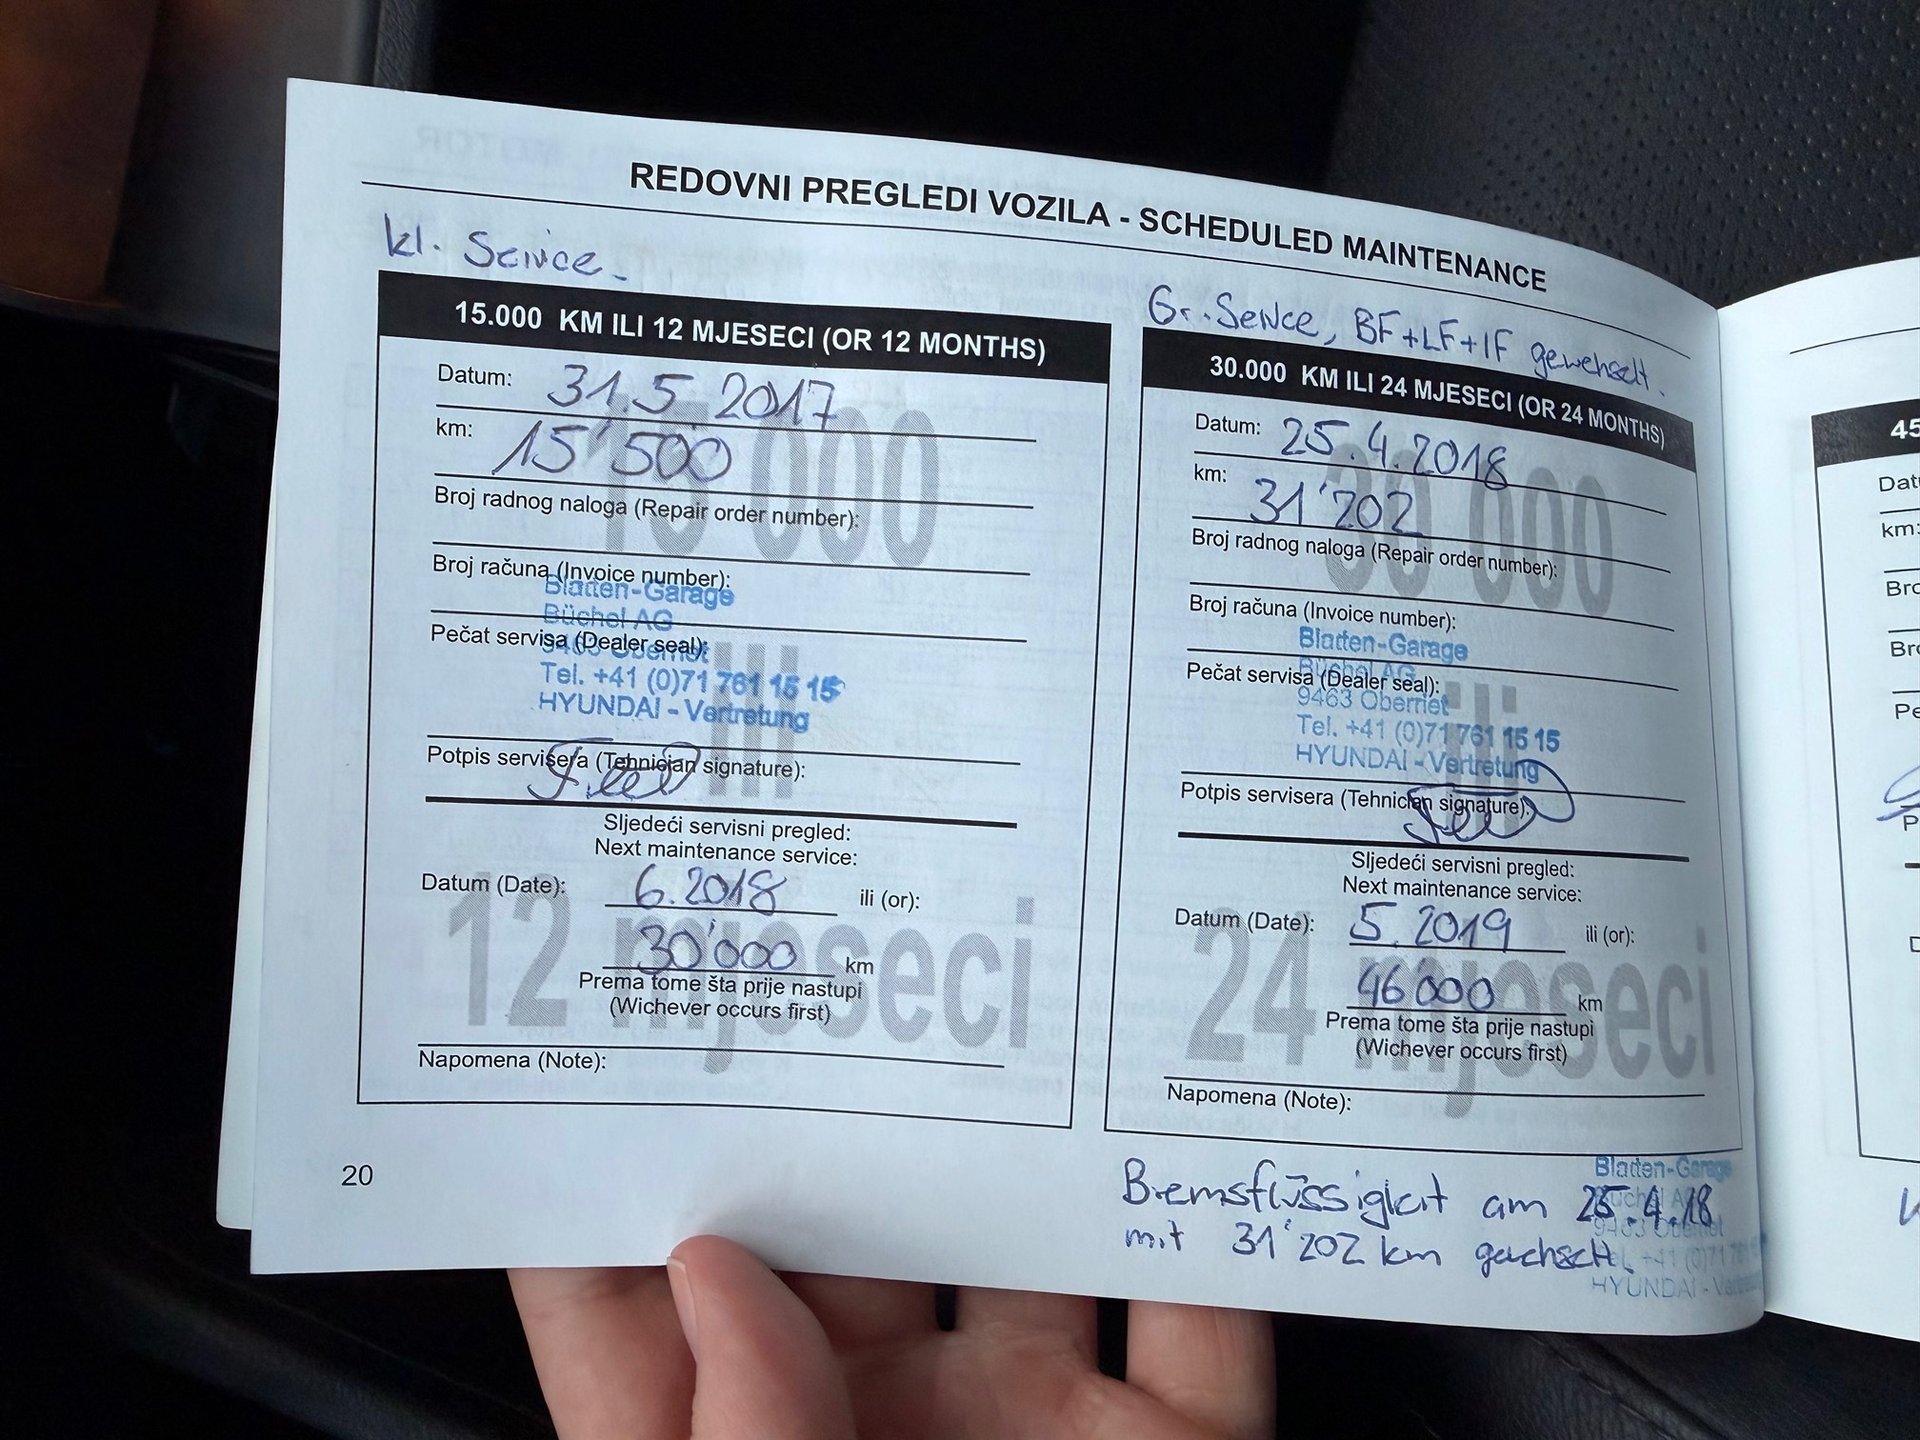 REDOVNI PREGLEDI VOZILA - SCHEDULED MAINTENANCE
kl. Service
15.000 KM ILI 12 MJESECI (OR 12 MONTHS)
Datum: 31.5.2017
km: 15'500
15 000
Broj radnog naloga (Repair order number):
Broj računa (Invoice number):
Blatten-Garage
Büchel AG
Pečat servisa (Dealer seal):
9463 Oberriet
Tel. +41 (0)71 761 15 15
HYUNDAI - Vertretung
ili
Potpis servisera (Tehnician signature):
Sljedeći servisni pregled:
Next maintenance service:
Datum (Date): 6.2018 ili (or):
30'000 km
12 mjeseci
Prema tome šta prije nastupi
(Wichever occurs first)
Napomena (Note):
20
Gr. Service, BF+LF+IF gewehselt.
30.000 KM ILI 24 MJESECI (OR 24 MONTHS)
Datum: 25.4.2018
km: 31'202
30 000
Broj radnog naloga (Repair order number):
Broj računa (Invoice number):
Blatten-Garage
Büchel AG
Pečat servisa (Dealer seal):
9463 Oberriet
Tel. +41 (0)71 761 15 15
HYUNDAI - Vertretung
ili
Potpis servisera (Tehnician signature):
Sljedeći servisni pregled:
Next maintenance service:
Datum (Date): 5.2019 ili (or):
46'000 km
24 mjeseci
Prema tome šta prije nastupi
(Wichever occurs first)
Napomena (Note):
Bremsflüssigkeit am 25.4.18
mit 31'202 km gewechselt.
Blatten-Garage
Büchel AG
9463 Oberriet
Tel. +41 (0)71
HYUNDAI -
45
km: